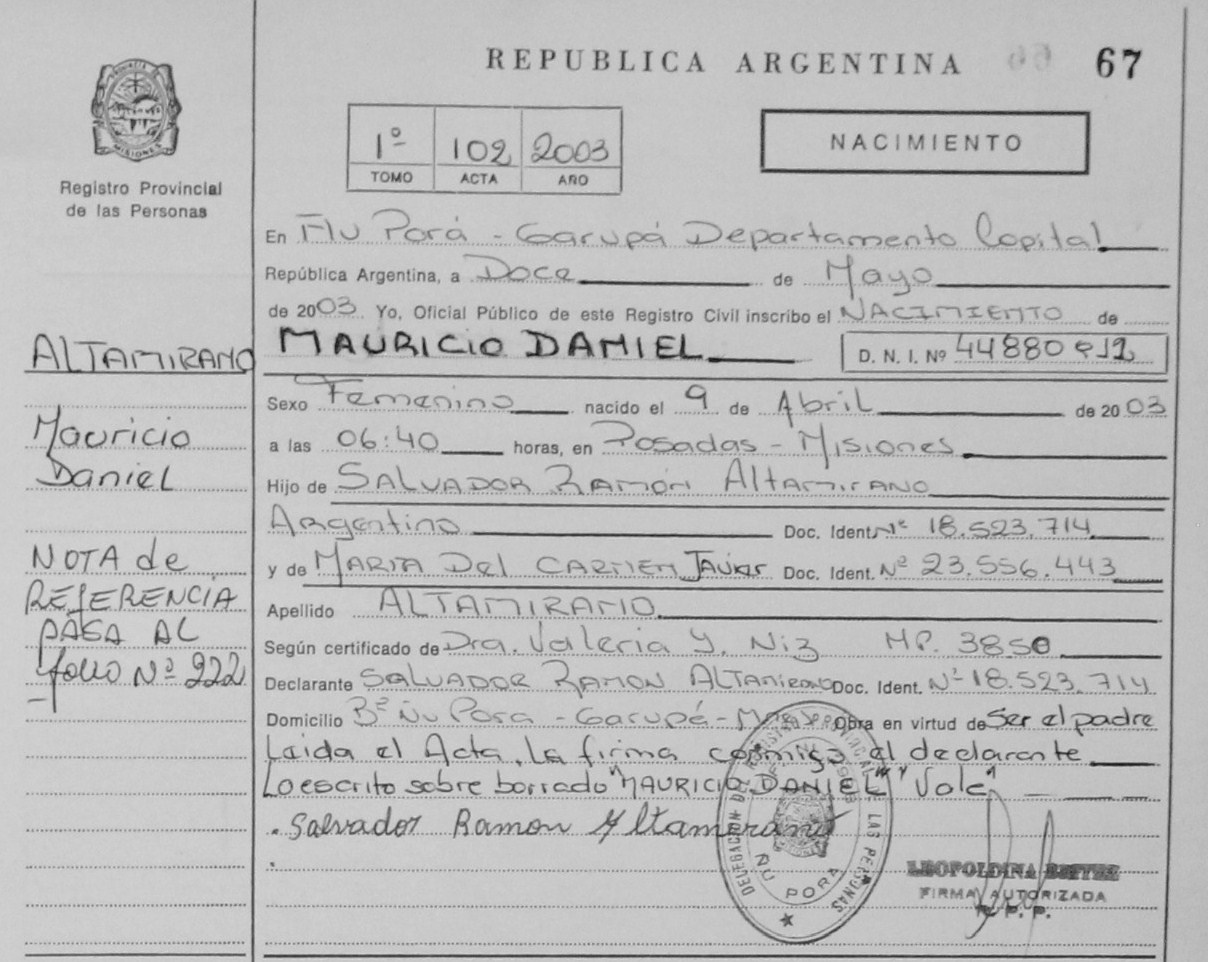 REPUBLICA ARGENTINA 66 67
PROVINCIA DE MISIONES
Registro Provincial
de las Personas
1º 102 2003
TOMO ACTA AÑO
NACIMIENTO
En Ñu Porá - Garupá Departamento Capital
República Argentina, a Doce de Mayo
de 2003 Yo, Oficial Público de este Registro Civil inscribo el NACIMIENTO de
MAURICIO DANIEL D. N. I. Nº 44880912
Sexo Femenino nacido el 9 de Abril de 2003
a las 06:40 horas, en Posadas - Misiones
Hijo de SALVADOR RAMÓN Altamirano
Argentino Doc. Ident. Nº 18.523.714
y de MARIA Del CARMEN Doc. Ident. Nº 23.556.443
Apellido ALTAMIRANO
Según certificado de Dra. Valeria Y. Niz MP. 3850
Declarante SALVADOR RAMON ALTAMIRANO Doc. Ident. Nº 18.523.714
Domicilio Bº Ñu Pora - Garupá - Obra en virtud de Ser el padre
Leida el Acta, La firma conmigo el declarante
Lo escrito sobre borrado "MAURICIO DANIEL" "Vale"
Salvador Ramon Altamerano
ALTAMIRANO
Mauricio
Daniel
NOTA de
REFERENCIA
PASA AL
folio Nº 222
DELEGACION DE REGISTRO PROVINCIAL DE LAS PERSONAS
ÑU PORA
LEOPOLDINA
FIRMA AUTORIZADA
R. P. P.